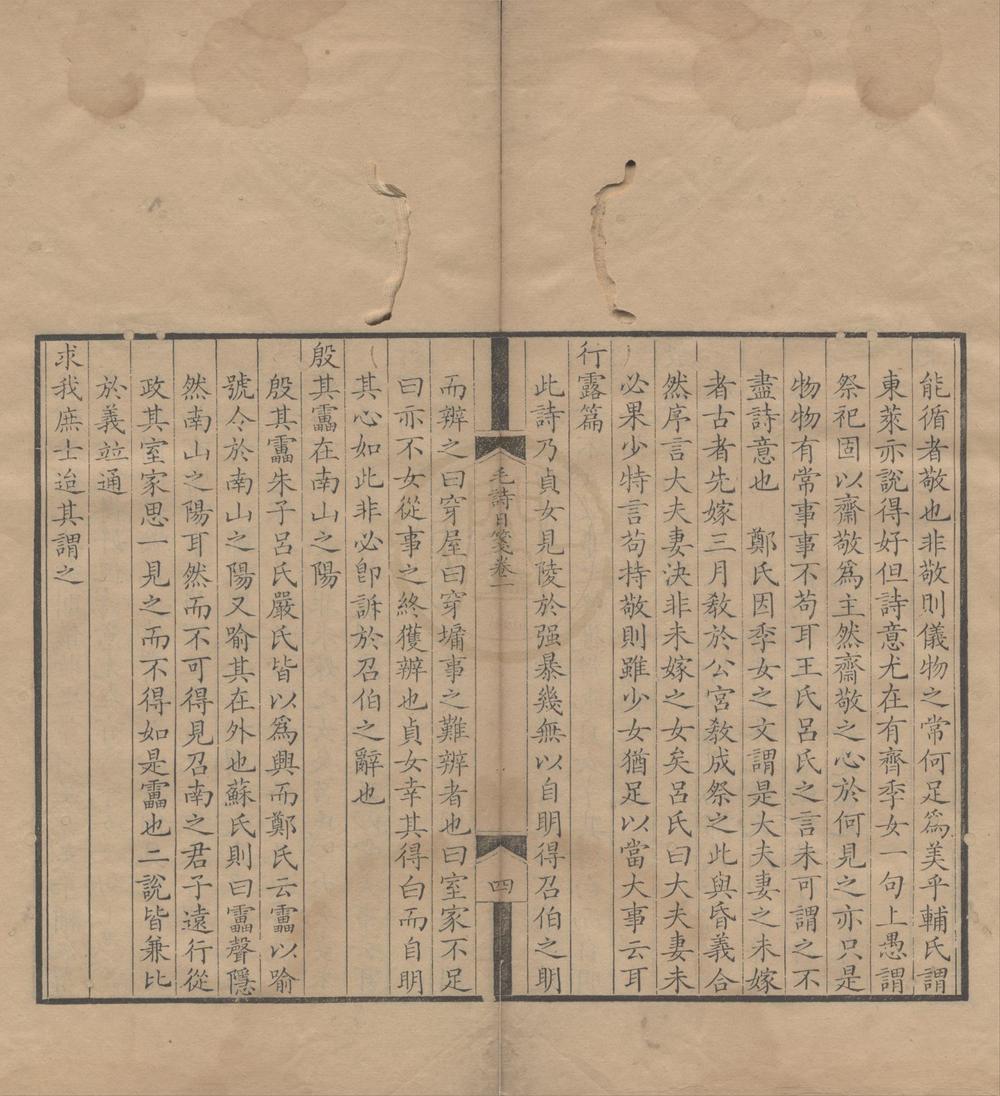 能循者敬也非敬則儀物之常何足爲美乎輔氏謂
東萊亦說得好但詩意尤在有齊季女一句上愚謂
祭祀固以齋敬爲主然齋敬之心於何見之亦只是
物物有常事事不苟耳王氏呂氏之言未可謂之不
盡詩意也　鄭氏因季女之文謂是大夫妻之未嫁
者古者先嫁三月敎於公宮敎成祭之此與昏義合
然序言大夫妻决非未嫁之女矣呂氏曰大夫妻未
必果少特言苟持敬則雖少女猶足以當大事云耳
行露篇
此詩乃貞女見陵於强暴幾無以自明得召伯之明
毛詩日箋卷一
四
而辨之曰穿屋曰穿墉事之難辨者也曰室家不足
曰亦不女從事之終獲辨也貞女幸其得白而自明
其心如此非必卽訴於召伯之辭也
殷其靁在南山之陽
殷其靁朱子呂氏嚴氏皆以爲興而鄭氏云靁以喻
號令於南山之陽又喻其在外也蘇氏則曰靁聲隱
然南山之陽耳然而不可得見召南之君子遠行從
政其室家思一見之而不得如是靁也二說皆兼比
於義竝通
求我庶士迨其謂之